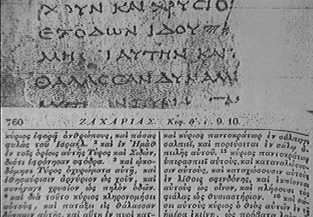 ΧΟΥΝ ΚΑΙ ΧΡΥΣΙΟ
ΕΞΟΔΩΝ ΙΔΟΥ
ΑΥΤΗΝ ΚΑΙ
ΘΑΛΑΣΣΑΝ ΔΥΝΑΜΙ
760 ΖΑΧΑΡΙΑΣ. Κεφ. θ´. ι. 9. 10.
κύριος ἐφορᾷ ἀνθρώπους, καὶ πάσας
φυλὰς τοῦ Ἰσραήλ. ²καὶ ἐν Ἡμὰθ
ἐν τοῖς ὁρίοις αὐτῆς Τύρος καὶ Σιδών,
διότι ἐφρόνησαν σφόδρα. ³καὶ ᾠκο-
δόμησε Τύρος ὀχυρώματα αὐτῇ, καὶ
ἐθησαύρισεν ἀργύριον ὡς χοῦν, καὶ
συνήγαγε χρυσίον ὡς πηλὸν ὁδῶν.
⁴καὶ διὰ τοῦτο κύριος κληρονομήσει
αὐτούς, καὶ πατάξει εἰς θάλασσαν
δύναμιν αὐτῆς, καὶ αὕτη ἐν πυρὶ κατ-
καὶ κύριος παντοκράτωρ ἐν σάλπιγγι
σαλπιεῖ, καὶ πορεύσεται ἐν σάλῳ ἀ-
πειλῆς αὐτοῦ. ¹⁵κύριος παντοκράτωρ
ὑπερασπιεῖ αὐτούς, καὶ καταναλώ-
σουσιν αὐτούς, καὶ καταχώσουσιν αὐτοὺς
ἐν λίθοις σφενδόνης, καὶ ἐκπίονται
αὐτοὺς ὡς οἶνον, καὶ πλήσουσι τὰς
φιάλας ὡς θυσιαστήριον. ¹⁶καὶ σώ-
σει αὐτοὺς κύριος ὁ θεὸς αὐτῶν ἐν τῇ
ἡμέρᾳ ἐκείνῃ, ὡς πρόβατα λαὸν